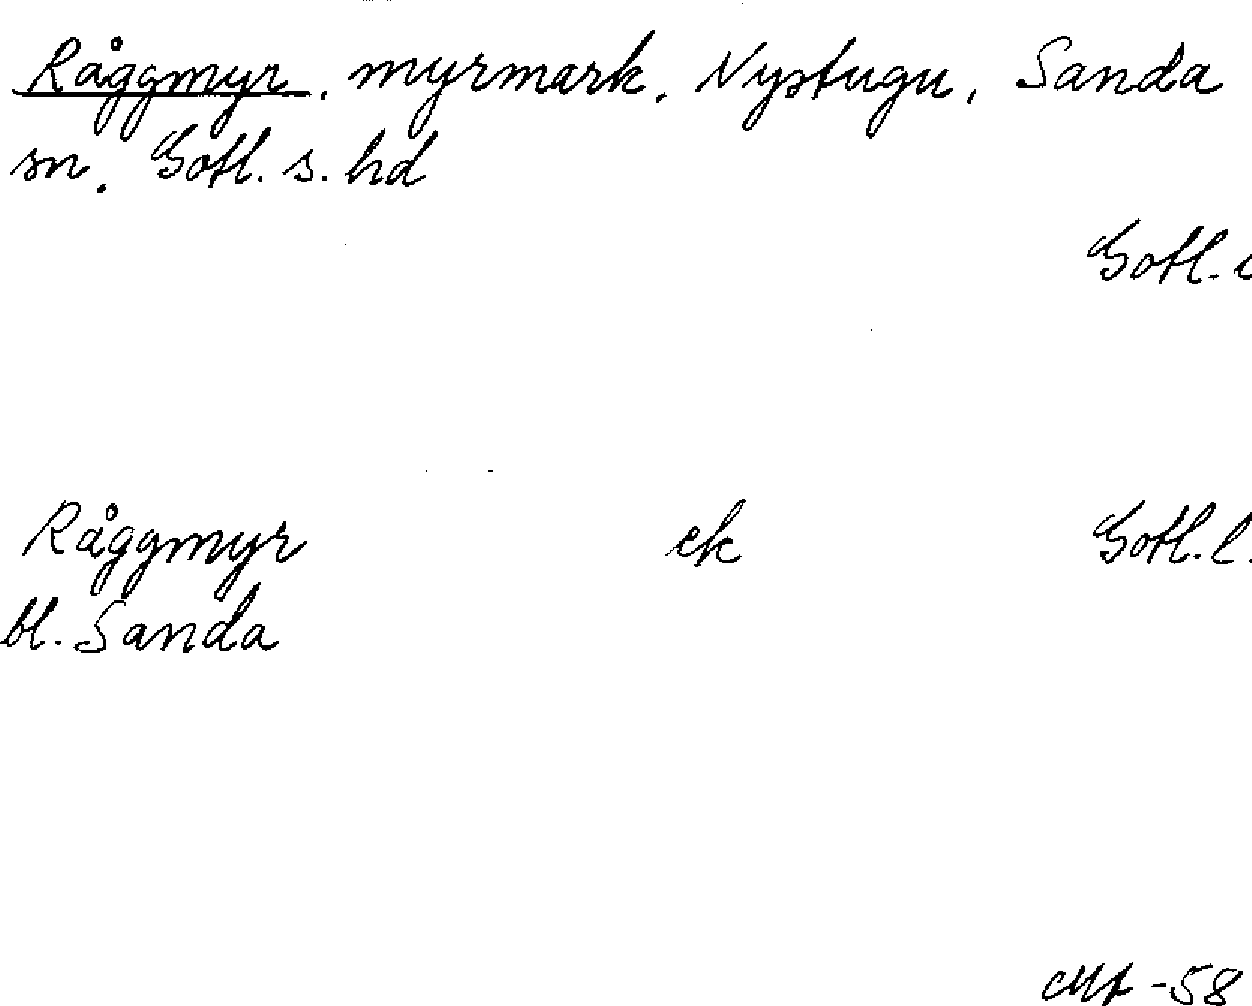 Råggmyr, myrmark, Nystugu, Sanda
sn. Gotl. s. hd
Gotl.
Råggmyr ek Gotl. l.
bl. Sanda
-58